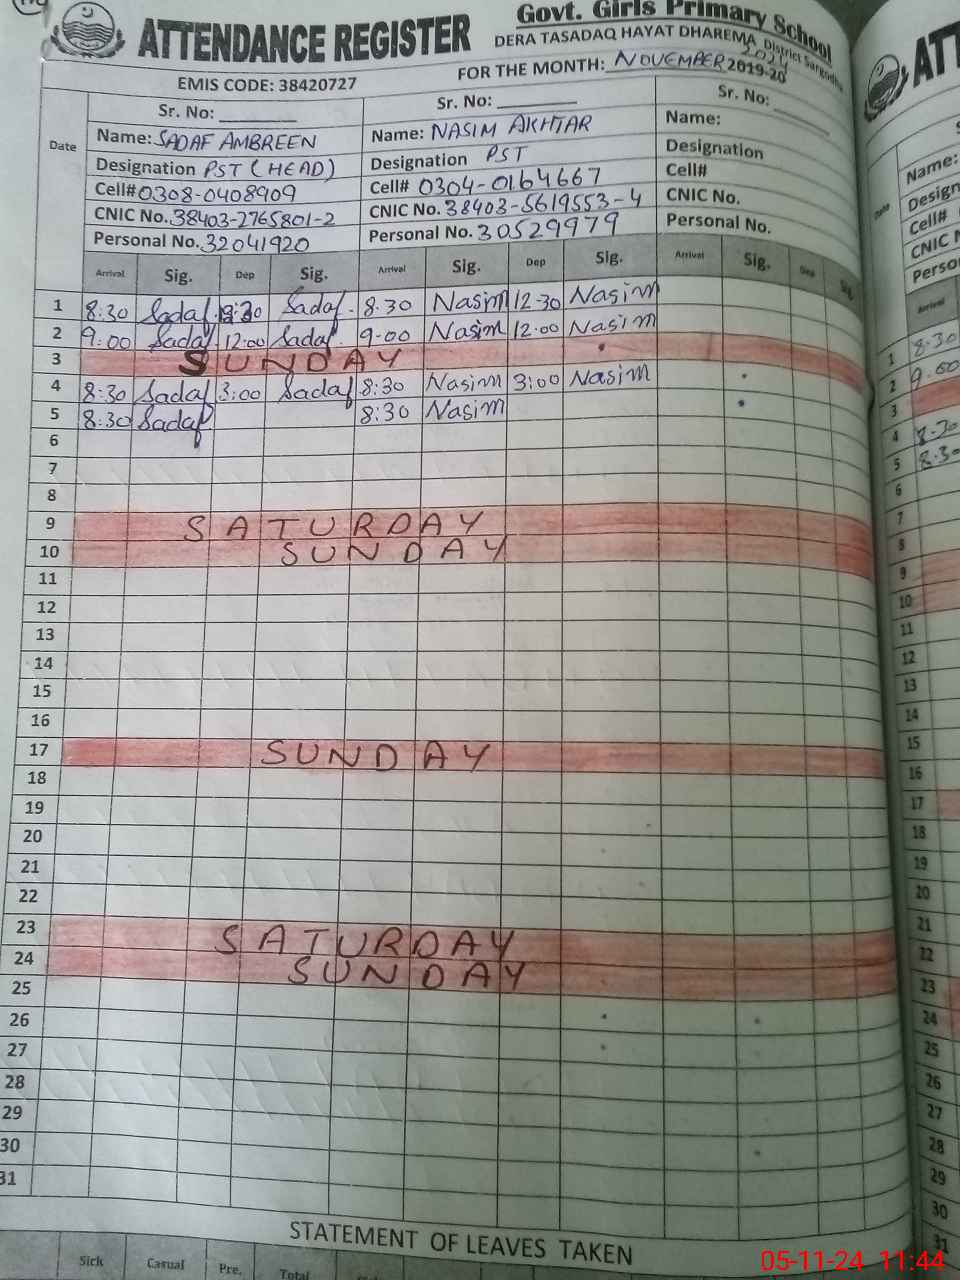 ATTENDANCE REGISTER
Govt. Girls Primary School
DERA TASADAQ HAYAT DHAREMA District Sargodha
EMIS CODE: 38420727
FOR THE MONTH: NOVEMBER 2019-20
2024
Date
Sr. No:
Name: SADAF AMBREEN
Designation PST (HEAD)
Cell# 0308-0408909
CNIC No. 38403-2765801-2
Personal No. 32041920
Sr. No:
Name: NASIM AKHTAR
Designation PST
Cell# 0304-0164667
CNIC No. 38403-5619553-4
Personal No. 30529979
Sr. No:
Name:
Designation
Cell#
CNIC No.
Personal No.
Arrival Sig. Dep Sig. Arrival Sig. Dep Sig. Arrival Sig. Dep Sig.
1 8:30 Sadaf Sadaf 8:30 Nasim 12:30 Nasim
2 9:00 Sadaf 12:00 Sadaf 9:00 Nasim 12:00 Nasim
3 SUNDAY
4 8:30 Sadaf 3:00 Sadaf 8:30 Nasim 3:00 Nasim
5 8:30 Sadaf 8:30 Nasim
6
7
8
9 SATURDAY
10 SUNDAY
11
12
13
14
15
16
17 SUNDAY
18
19
20
21
22
23 SATURDAY
24 SUNDAY
25
26
27
28
29
30
31
STATEMENT OF LEAVES TAKEN
Sick Casual Pre. Total
ATT
Date
Name:
Design
Cell#
CNIC N
Perso
Arrival
1 8:30
2 9:00
3
4 8:30
5 8:30
6
7
8
9
10
11
12
13
14
15
16
17
18
19
20
21
22
23
24
25
26
27
28
29
30
31
05-11-24 11:44